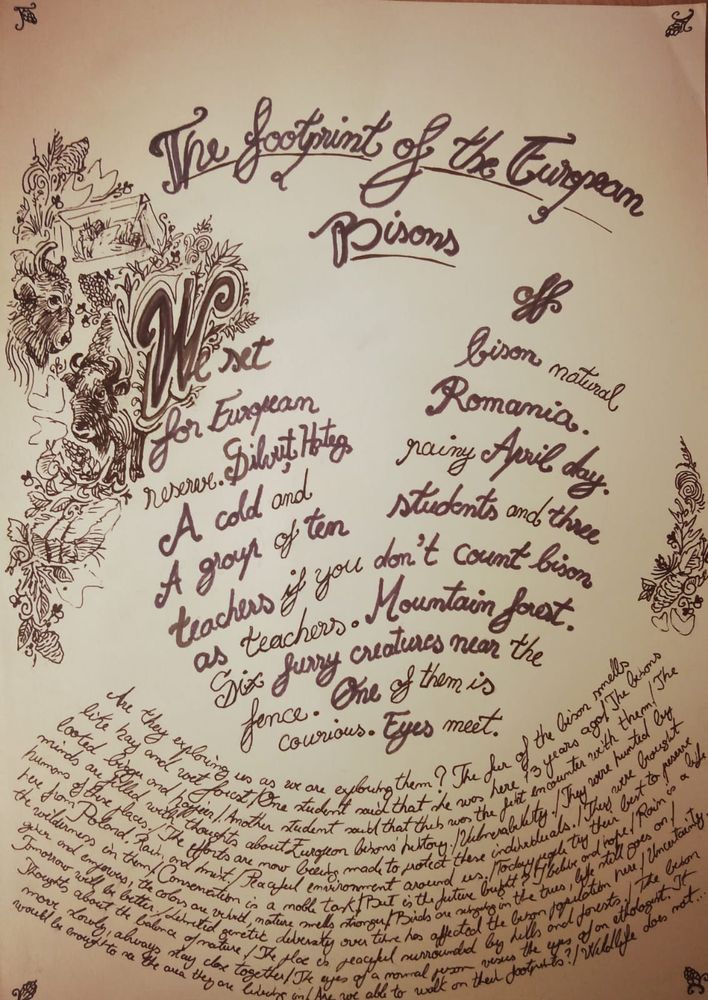 The footprint of the European
Bisons
We set off
for European bison natural
reserve. Silvut, Hateg Romania.
A cold and rainy April day.
A group of ten students and three
teachers if you don't count bison
as teachers. Mountain forest.
Six furry creatures near the
fence. One of them is
courious. Eyes meet.
Are they exploring us as we are exploring them? The fur of the bison smells
like hay and wet forest/One student said that she was here 3 years ago/The bisons
looked bigger and happier/Another student said that this was the first encounter with them/The
minds are filled with thoughts about European bisons history/Vulnerability/They were hunted by
humans of these places/The efforts are now being made to protect these individuals/They were brought
here from Poland/Rain and mist/Peaceful environment around us/Today people try their best to preserve
the wilderness in them/Conservation is a noble task/But is the future bright?/I believe and hope/Rain is a life
giver and empowers, the colors are vivid, nature smells stronger/Birds are singing in the trees, life still goes on/
Tomorrow will be better/Limited genetic diversity over time has affected the bison population here/Uncertainty
Thoughts about the balance of nature/The place is peaceful surrounded by hills and forests/The bison
move slowly, always stay close together/The eyes of a normal person versus the eyes of an ethologist. It
would be enough to see the area they are living in/Are we able to walk on their footprints?/Wildlife does not...